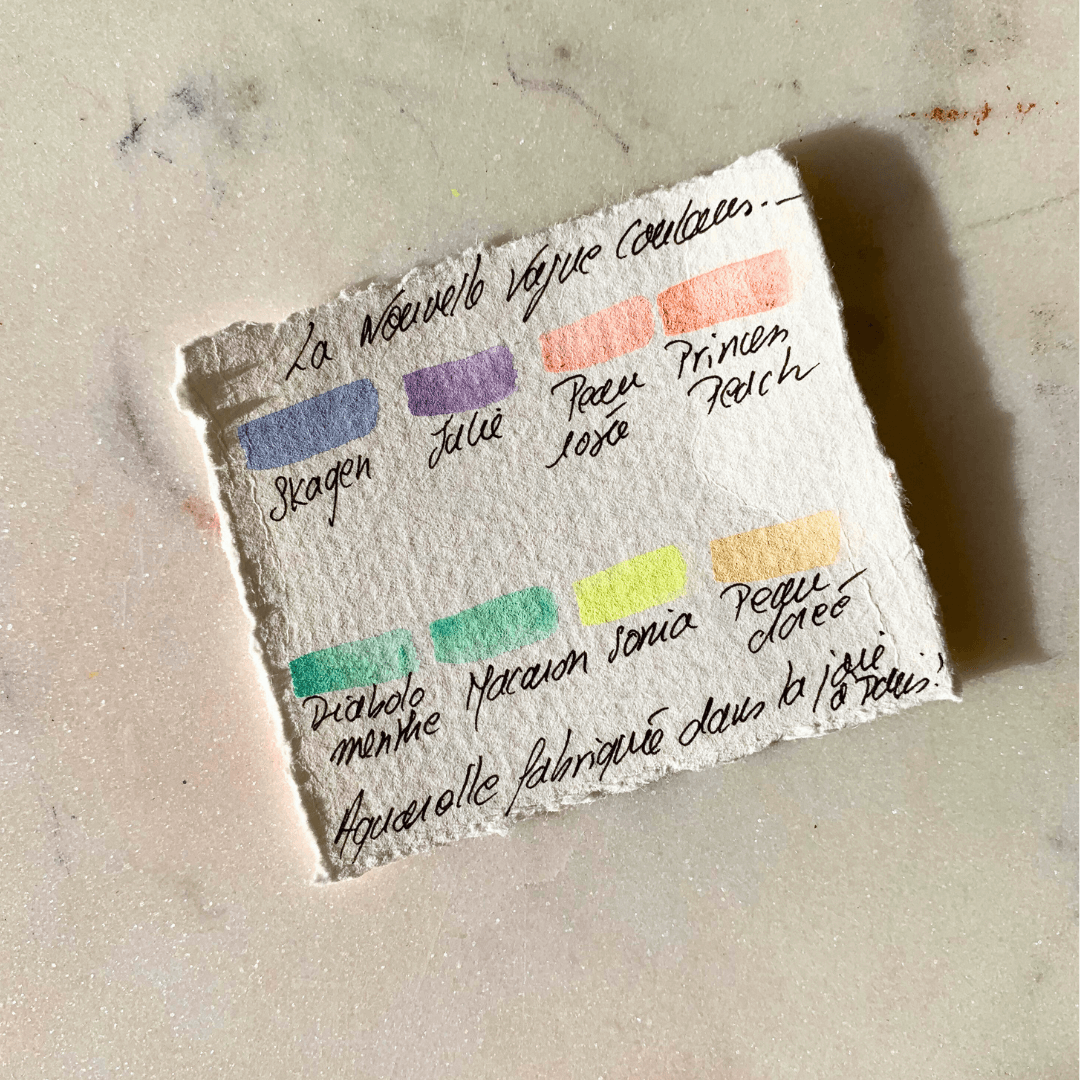 La Nouvelle Vague Couleurs...
Skagen
Julie
Peau
rosée
Princess
Peach
Diabolo
menthe
Macaron
Sonia
Peau
dorée
Aquarelle fabriquée dans la joie
à Paris!